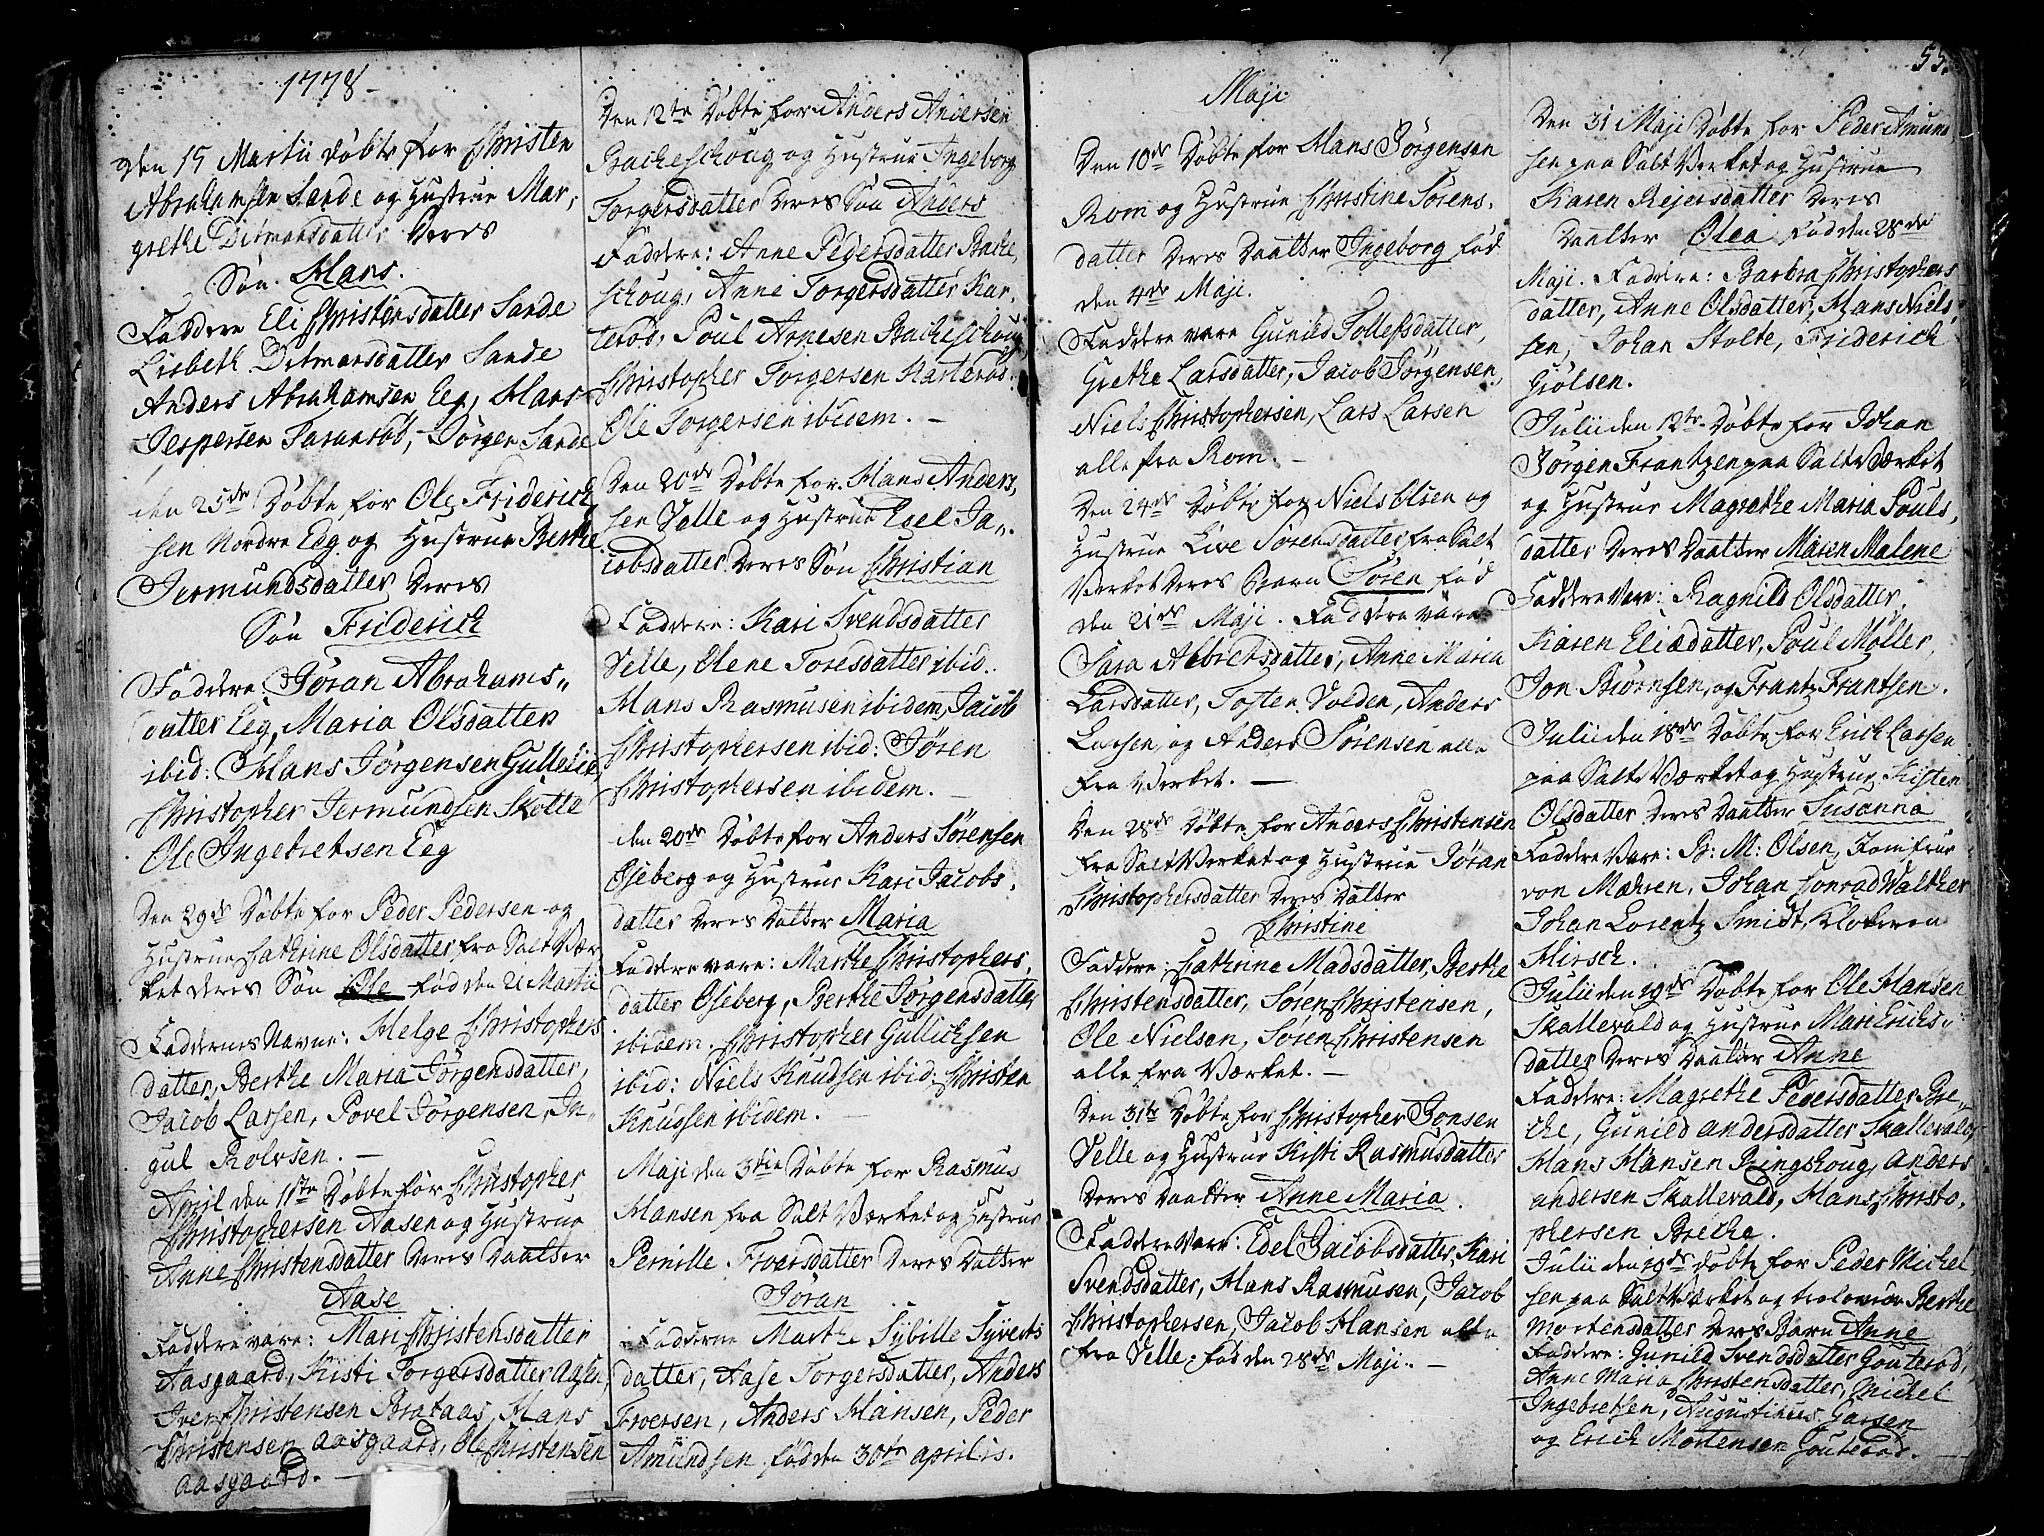 1778
Den 15 Martii døbte for Christen
Abrahamsen Sande og Hustrue Mar-
grethe Ditmarsdatter Deres
Søn. Hans.
Faddere Eli Christensdatter Sande
Lisbeth Ditmarsdatter Sande
Anders Abrahamsen Eeg, Hans
Jespersen Faransbø, Jørgen Sande
den 25de Døbte for Ole Friderich
sen Nordre Eeg og Hustrue Berthe
Jermundsdatter Deres
Søn Friderich
Faddere. Jøran Abrahams-
datter Eeg, Maria Olsdatter
ibid: Hans Jørgensen Gullelie
Christopher Jermundsen Skotte
Ole Ingebretsen Eeg
Den 29de Døbte for Peder Pedersen og
Hustrue Cathrine Olsdatter fra Salt Vær-
ket deres Søn Ole fød den 21 Martii
Faddernes Navne: Helge Christophers
datter, Berthe Maria Jørgensdatter,
Jacob Larsen, Povel Jørgensen, In-
gul Rolvsen.
April den 1ste Døbte for Christopher
Christophersen Aasen og Hustrue
Anne Christensdatter Deres Daatter
Aase
Faddere vare: Mari Christensdatter
Aasgaard, Kisti Torgersdatter Aasen,
Iver Christensen Brataas, Hans
Christensen aasgaard, Ole Christensen
aasgaard.
Den 12te Døbte for Anders Andersen
Bacheschoug og Hustrue Ingeborg
Torgersdatter Deres Søn Anders
Faddere: Anne Pedersdatter Bache
schoug, Anne Torgersdatter Kar-
terød, Poul Arnesen Bacheschoug
Christopher Torgersen Karterød
Ole Torgersen ibidem.
Den 20de Døbte for Hans Anders,
sen Velle og Hustrue Edel Ja-
cobsdatter Deres Søn Christian
Faddere: Kari Svendsdatter
Velle, Olene Toresdatter ibid.
Hans Rasmusen ibidem, Jacob
Christophersen ibid: Søren
Christophersen ibidem.
den 20de Døbte for Anders Sørensen
Oseberg og Hustrue Kari Jacobs-
datter Deres Datter Maria
Faddere vare: Marthe Christophers,
datter Oseberg, Berthe Jørgensdatter
ibidem. Christopher Gullichsen
ibid: Niels Knudsen ibid: Christen
Knudsen ibidem.
Maji den 3die Døbte for Rasmus
Hansen fra Salt Værket og Hustrue
Pernille Troersdatter Deres Datter
Jøran
Fadderne Marthe Sybille Syverts
datter, Aase Torgersdatter, Anders
Troersen, Anders Hansen, Peder
Amundsen. fød den 30te aprilis.
Maji
Den 10de Døbte for Hans Jørgensen
Rom og Hustrue Christine Sørens-
datter Deres Daatter Ingeborg fød
den 4de Maji.
Faddere vare Gunild Tollefsdatter,
Grethe Larsdatter, Jacob Jørgensen,
Niels Christophersen, Lars Larsen
alle fra Rom.
Den 24de Døbte for Niels Olsen og
Hustrue Live Sørensdatter fra Salt
Verket Deres Barn Søren fød
den 21de Maji. Faddere vare
Sara Albretsdatter, Anne Maria
Larsdatter, Tosten Volden, Anders
Larsen, og Anders Sørensen alle
fra Verket.
Den 28de Døbte for Anders Christensen
fra Salt Verket og Hustrue Jøran
Christophersdatter Deres Datter
Christine
Faddere: Cathrine Madsdatter, Berthe
Christensdatter, Søren Christensen,
Ole Nielsen, Søren Christensen
alle fra Værket.
Den 31te Døbte for Christopher Jonsen
Velle og Hustrue Kisti Rasmusdatter
Deres Daatter Anne Maria.
Faddere Vare: Edel Jacobsdatter, Kari
Svendsdatter, Hans Rasmusen, Jacob
Christophersen, Jacob Hansen alle
fra Velle, fød den 28de Maji.
55.
Den 31 Maji Døbte for Peder Amund,
sen paa Salt Værket og Hustrue
Karen Rejersdatter Deres
Daatter Olea fød den 28de
Maji. Faddere: Barbra Christophers
datter, Anne Olsdatter, Hans Niels,
sen, Johan Stolte, Friderich
Giølsen.
Julii den 12te Døbte for Johan
Jørgen Frantzen paa Salt Værket
og Hustrue Magrethe Maria Pouls,
datter Deres Daatter Maren Malene
Faddere Vare: Ragnild Olsdatter,
Karen Eliædatter, Poul Møller,
Jon Biørnsen, og Frantz Frantsen.
Julii den 18de Døbte for Erich Larsen
paa Salt Værket og Hustrue Kisten
Olsdatter Deres Daatter Susanna
Faddere Vare: B: M: Olsen, Jomfrue
von Mahren, Johan Conrad Walther
Johan Lorentz Smidt, Klokeren
Hirsch.
Julii den 19de Døbte for Ole Hansen
Skallevald og Hustrue Mari Erichs-
datter Deres Daatter Anne
Faddere: Magrethe Pedersdatter Bre-
che, Gunild andersdatter Skallevald,
Hans Hansen Ringshoug, anders
andersen Skallevald, Hans Christo,
phersen Breche.
Julii den 19de døbte for Peder Michel
sen paa Salt Værket og trolovede Berthe
Mortensdatter Deres Barn Anne
Faddere: Gunild Svendsdatter Gouterød,
Anne Maria Christensdatter, Michel
Ingebretsen, Augustinus Larsen
og Erich Mortensen Gouterød.